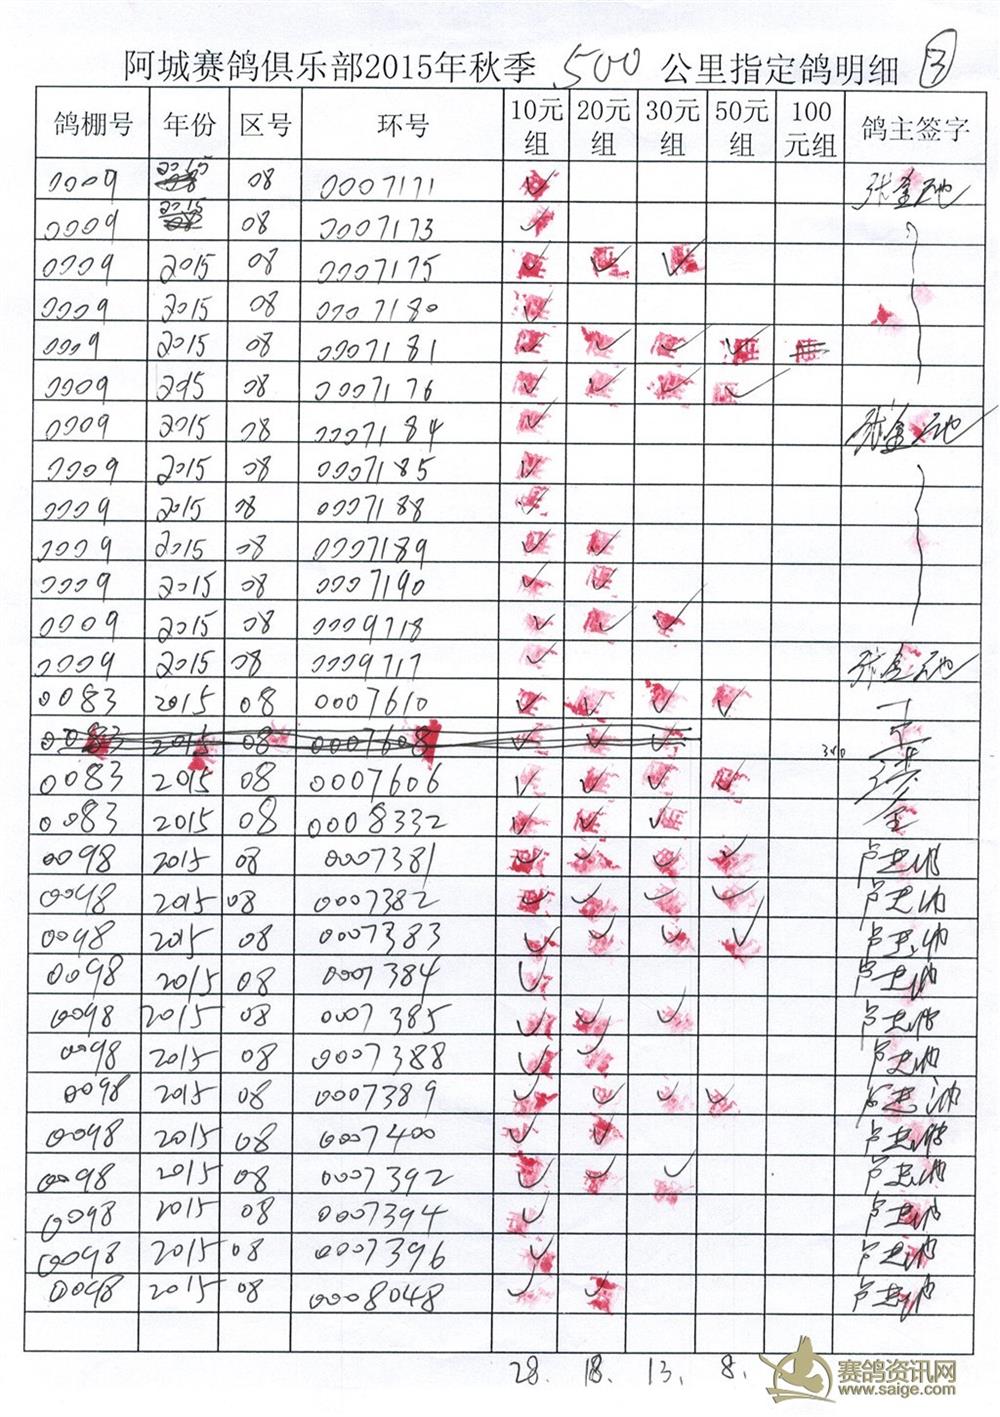 阿城赛鸽俱乐部2015年秋季 500 公里指定鸽明细 ③
鸽棚号 年份 区号 环号 10元组 20元组 30元组 50元组 100元组 鸽主签字
0009 2015 08 0007171 ✓
0009 2015 08 0007173 ✓
0009 2015 08 0007175 ✓ ✓ ✓
0009 2015 08 0007180 ✓
0009 2015 08 0007181 ✓ ✓ ✓ ✓
0009 2015 08 0007176 ✓ ✓ ✓ ✓
0009 2015 08 0007184 ✓
0009 2015 08 0007185 ✓
0009 2015 08 0007188 ✓
0009 2015 08 0007189 ✓ ✓
0009 2015 08 0007190 ✓ ✓
0009 2015 08 0009718 ✓ ✓ ✓
0009 2015 08 0009717 ✓
0083 2015 08 0007610 ✓ ✓ ✓ ✓
0083 2015 08 0007608 ✓ ✓ ✓
0083 2015 08 0007606 ✓ ✓ ✓ ✓
0083 2015 08 0008332 ✓ ✓ ✓
0098 2015 08 0007381 ✓ ✓ ✓ ✓
0098 2015 08 0007382 ✓ ✓ ✓ ✓
0098 2015 08 0007383 ✓ ✓ ✓ ✓
0098 2015 08 0007384 ✓
0098 2015 08 0007385 ✓ ✓ ✓
0098 2015 08 0007388 ✓ ✓
0098 2015 08 0007389 ✓ ✓ ✓ ✓
0098 2015 08 0007400 ✓ ✓
0098 2015 08 0007392 ✓ ✓ ✓
0098 2015 08 0007394 ✓
0098 2015 08 0007396 ✓
0098 2015 08 0008048 ✓ ✓
28. 18. 13. 8.
赛鸽资讯网
www.saige.com